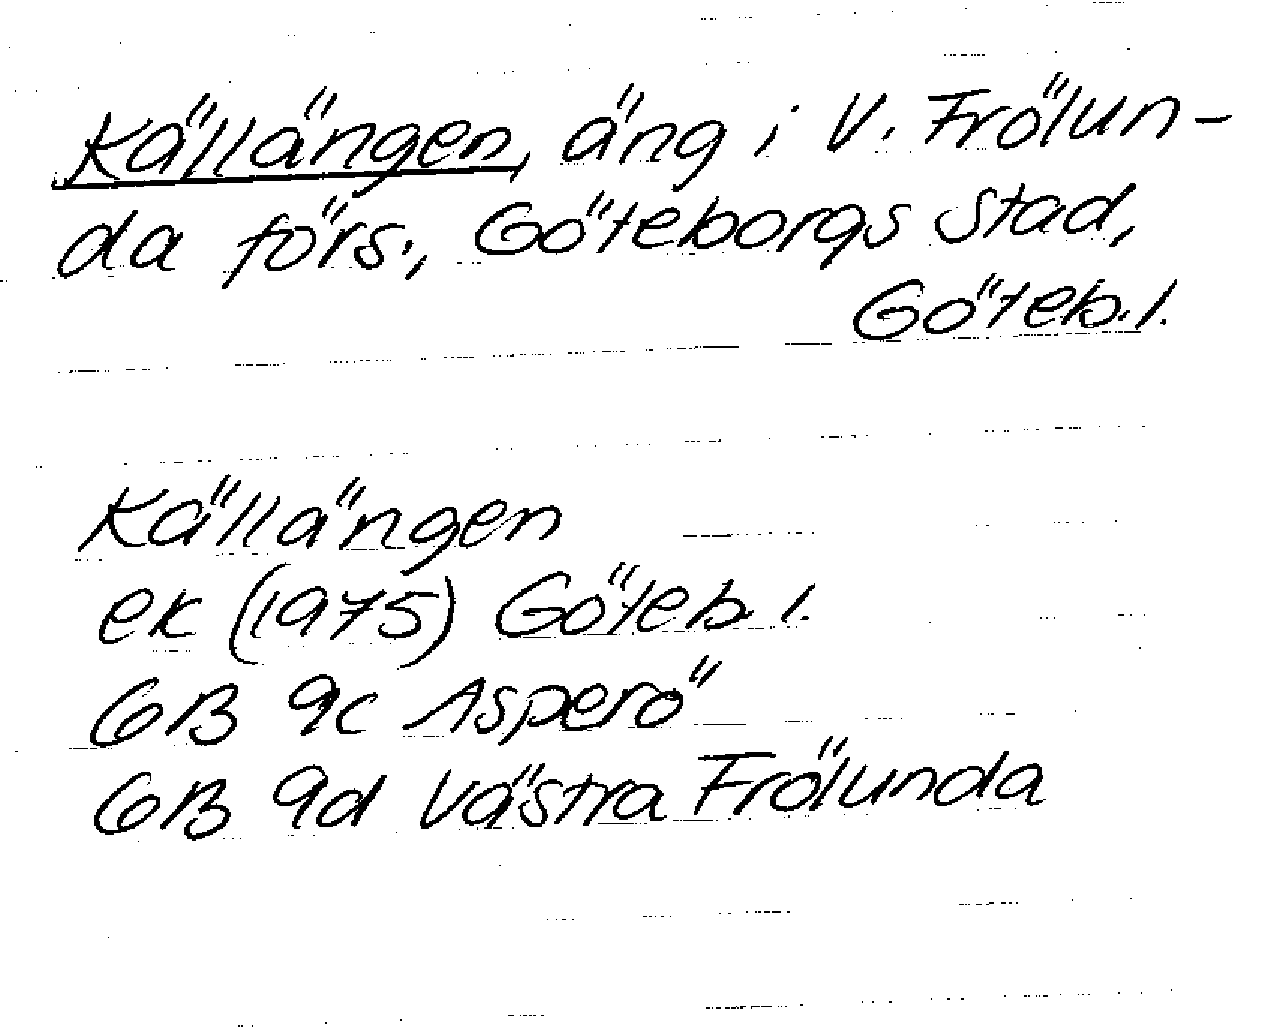 Källängen, äng i V. Frölun-
da förs., Göteborgs stad,
Göteb.l.
Källängen
ek (1975) Göteb.l.
6B 9c Asperö
6B 9d Västra Frölunda